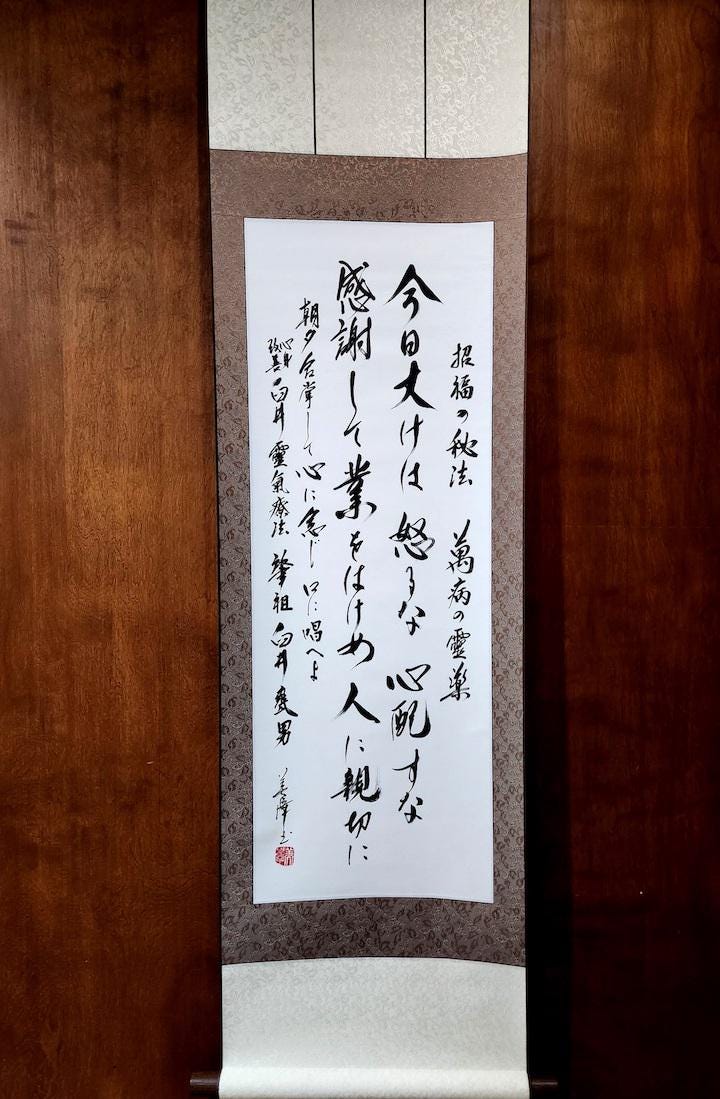 招福の秘法　萬病の靈薬
今日丈けは　怒るな　心配すな
感謝して業をはけめ　人に親切に
朝夕合掌して心に念じ口に唱へよ
心身
改善
臼井靈氣療法　肇祖　臼井甕男